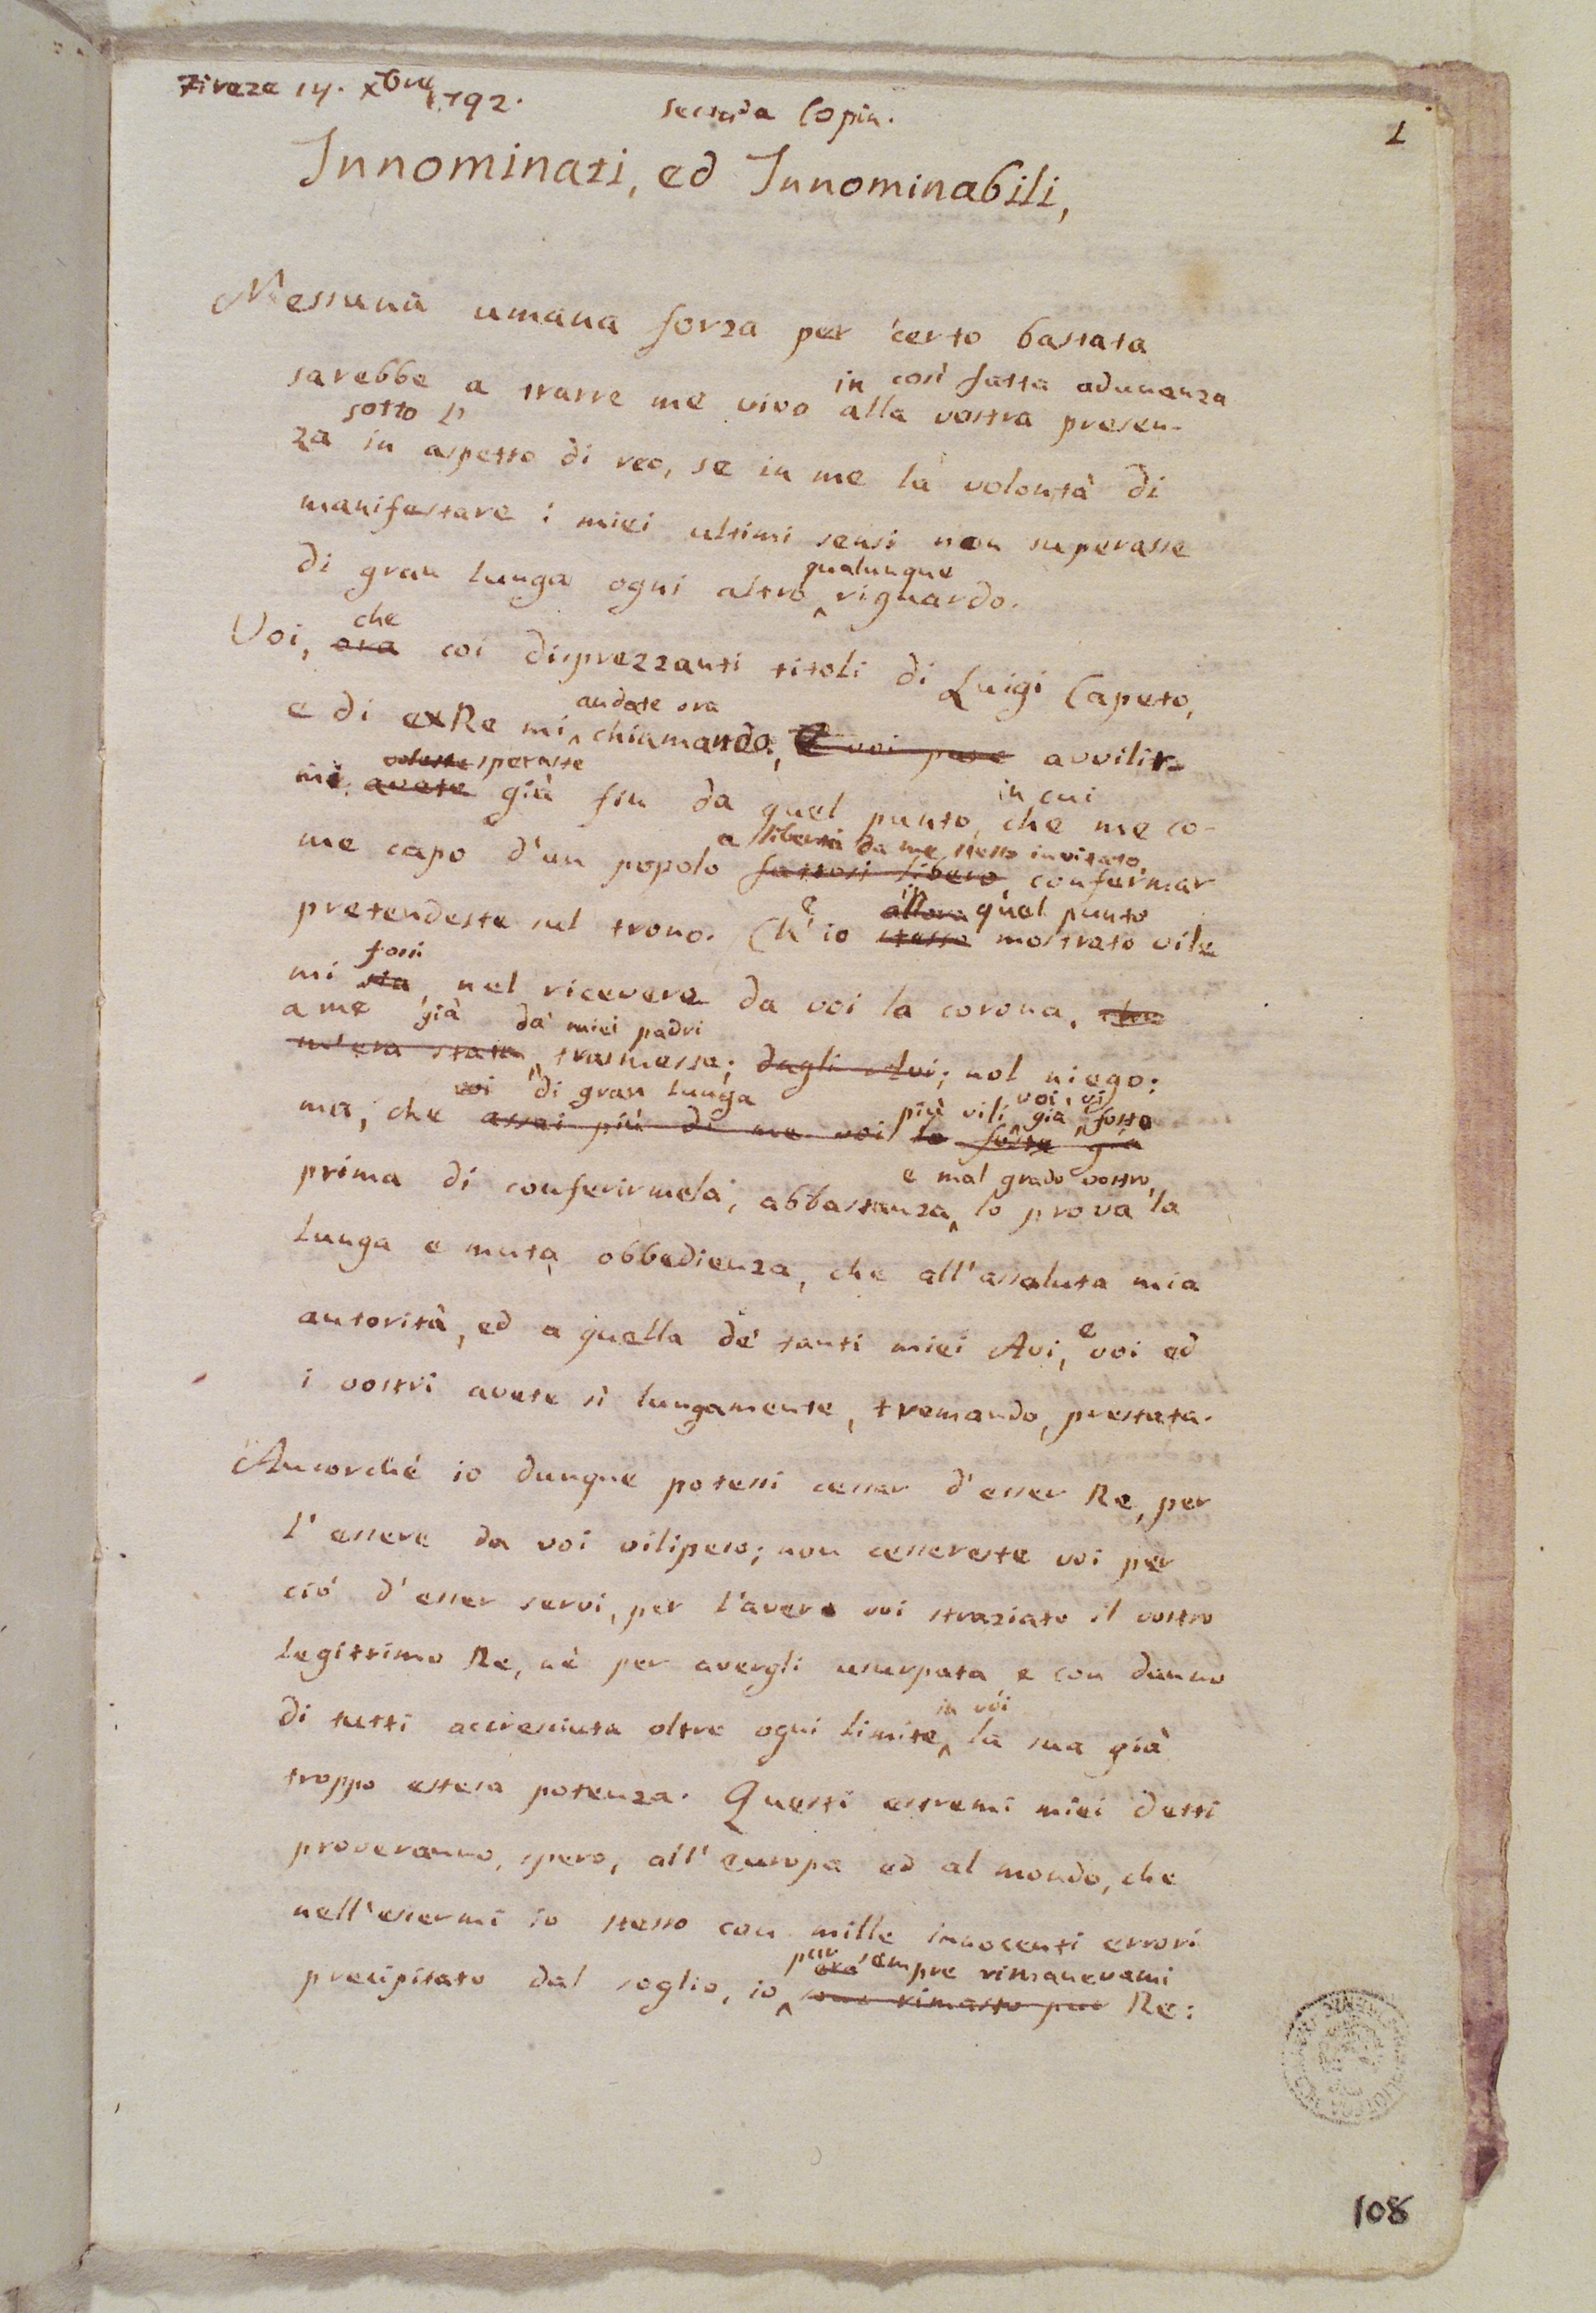 Firenze 14. Xbre 1792.
seconda Copia.
1
Innominati, ed Innominabili,
Nessuna umana forza per certo bastata
in così fatta adunanza
sarebbe a trarre me vivo alla vostra presen-
sotto l'
za in aspetto di reo, se in me la volontà di
manifestare i miei ultimi sensi non superasse
qualunque
di gran lunga ogni altro riguardo.
che
Voi, ora coi disprezzanti titoli di Luigi Capeto,
andate ora
e di exRe mi chiamando, E voi pure avvilir-
speraste
mi avete già fin da quel punto, in cui che me co-
a libertà da me stesso invitato,
me capo d'un popolo fattosi libero, confermar
e allora in quel punto
pretendeste sul trono. Ch' io stesso mostrato vile
fossi
mi sia, nel ricevere da voi la corona, che
a me già da' miei padri
m'era stata trasmessa; dagli Avi; nol niego:
voi di gran lunga più vili già voi, vi foste
ma, che assai più di me voi lo foste già
e mal grado vostro,
prima di conferirmela, abbastanza lo prova la
lunga e muta obbedienza, che all'assoluta mia
e
autorità, ed a quella de' tanti miei Avi, voi ed
i vostri avete sì lungamente, tremando, prestata.
Ancorché io dunque potessi cessar d'esser Re, per
l'essere da voi vilipeso; non cessereste voi per
ciò d'esser servi, per l'avere voi straziato il vostro
legittimo Re, nè per avergli usurpata, e con danno
in voi
di tutti accresciuta oltre ogni limite, la sua già
troppo estesa potenza. Questi estremi miei detti
proveranno, spero, all'Europa ed al mondo, che
nell'essermi io stesso con mille innocenti errori
pur ora sempre rimanevami
precipitato dal soglio, io sono rimasto pur Re:
108